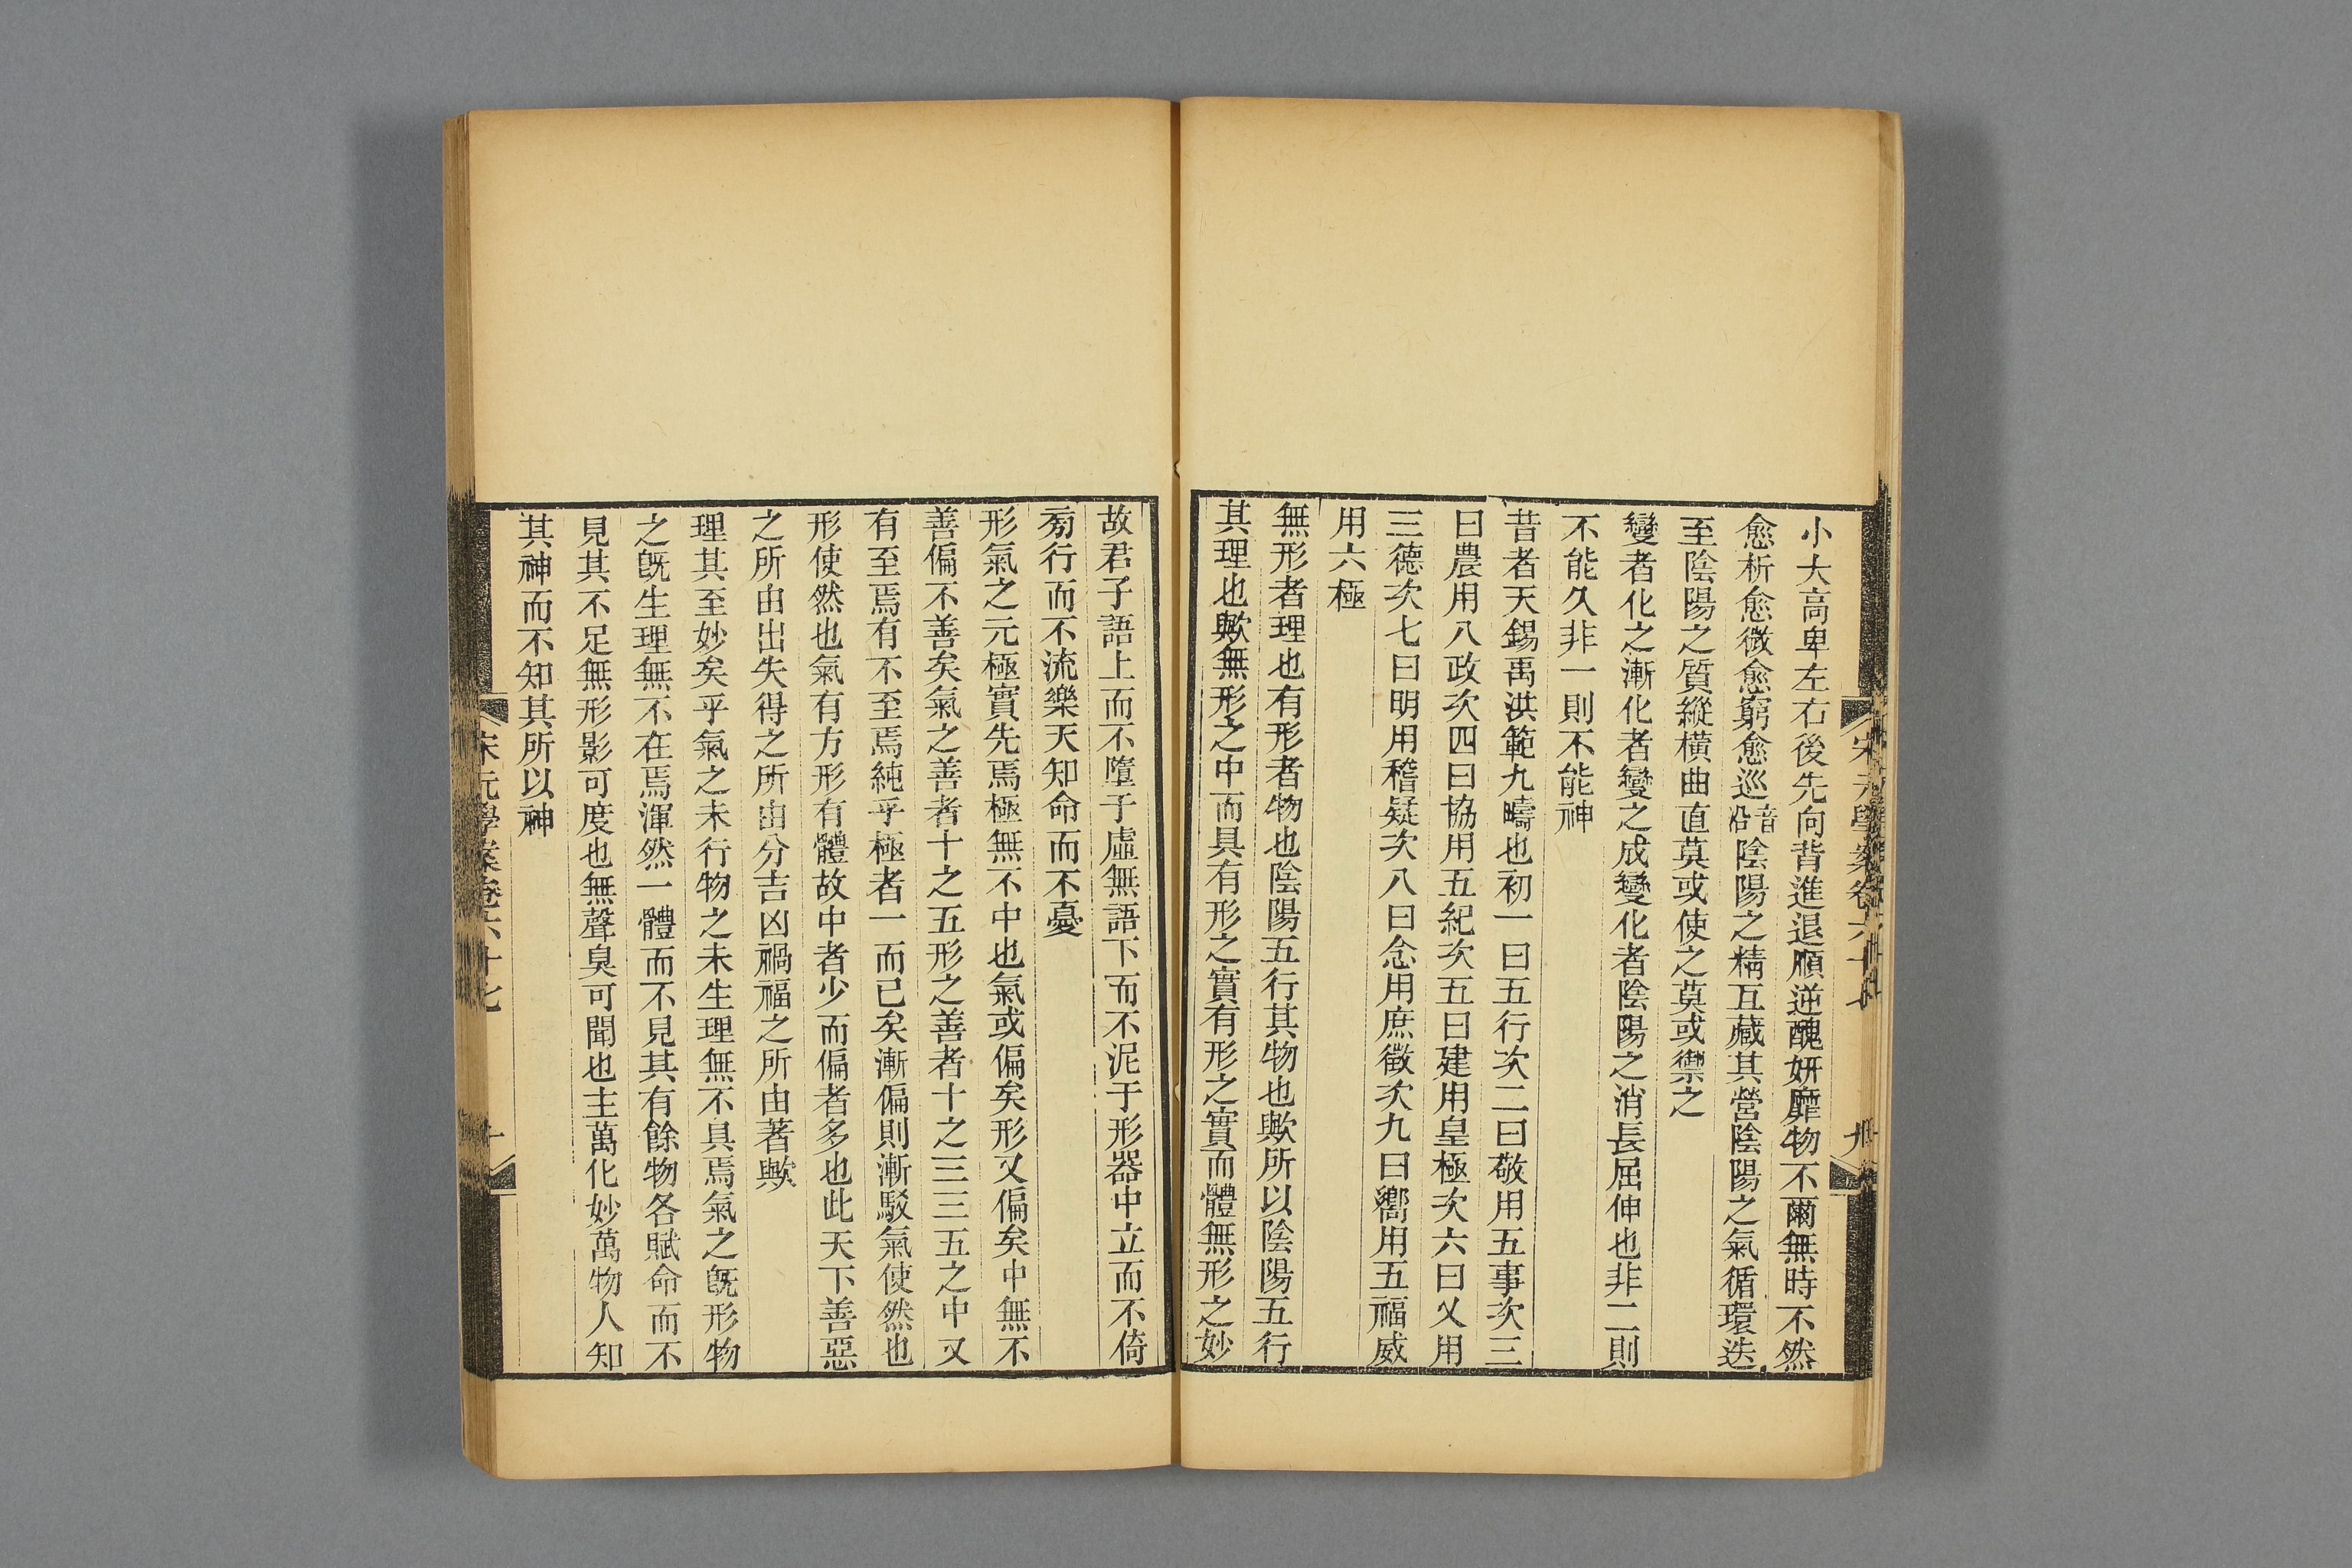 小大高卑左右後先向背進退順逆醜妍靡物不爾無時不然
愈析愈微愈窮愈巡音沿陰陽之精互藏其營陰陽之氣循環迭
至陰陽之質縱橫曲直莫或使之莫或禦之
變者化之漸化者變之成變化者陰陽之消長屈伸也非二則
不能久非一則不能神
昔者天錫禹洪範九疇也初一曰五行次二曰敬用五事次三
曰農用八政次四曰協用五紀次五曰建用皇極次六曰乂用
三德次七曰明用稽疑次八曰念用庶徵次九曰嚮用五福威
用六極
無形者理也有形者物也陰陽五行其物也歟所以陰陽五行
其理也歟無形之中而具有形之實有形之實而體無形之妙
故君子語上而不墮于虛無語下而不泥于形器中立而不倚
旁行而不流樂天知命而不憂
形氣之元極實先焉極無不中也氣或偏矣形又偏矣中無不
善偏不善矣氣之善者十之五形之善者十之三三五之中又
有至焉有不至焉純乎極者一而已矣漸偏則漸駁氣使然也
形使然也氣有方形有體故中者少而偏者多也此天下善惡
之所由出失得之所由分吉凶禍福之所由著歟
理其至妙矣乎氣之未行物之未生理無不具焉氣之既形物
之既生理無不在焉渾然一體而不見其有餘物各賦命而不
見其不足無形影可度也無聲臭可聞也主萬化妙萬物人知
其神而不知其所以神
宋元學案卷六十七